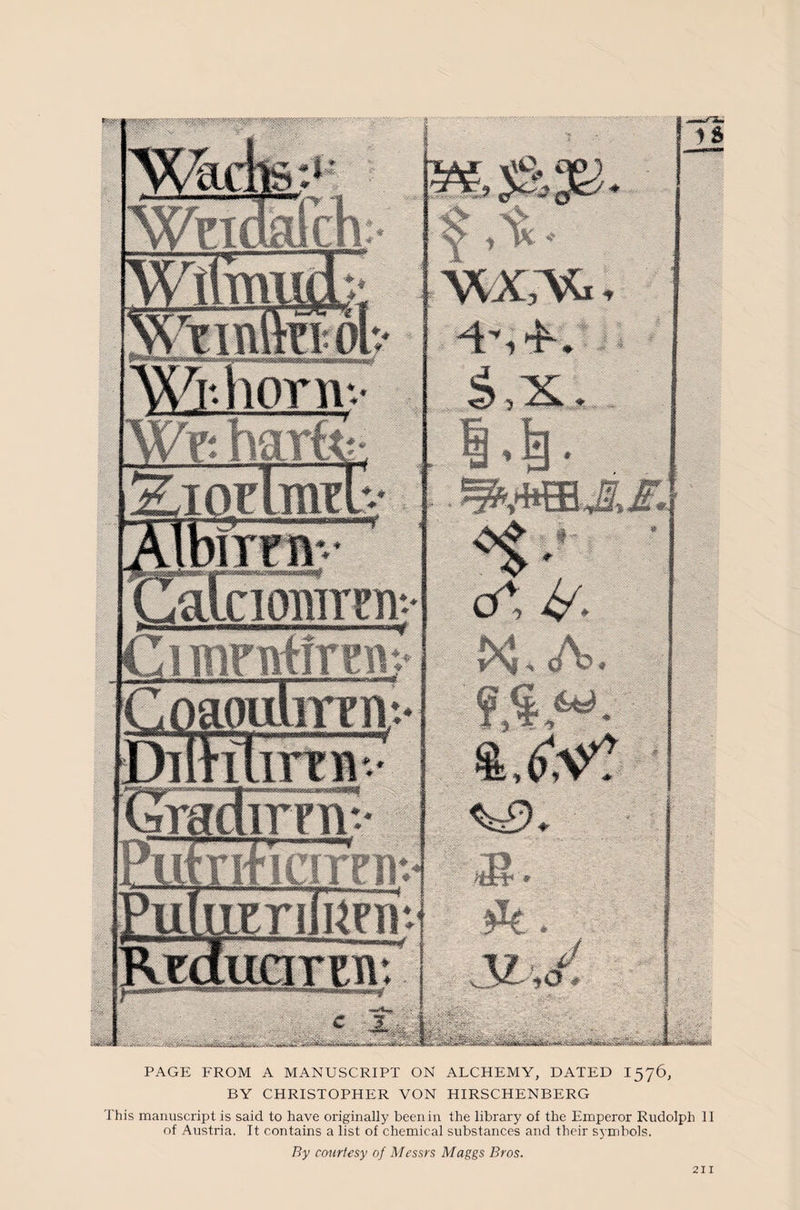 18
Wachs:
Weidasch:
Wismud:
Weinstei: ol:
Wi: horn:
We: harts:
Zioelmel:
Albirren:
Calcioniren:
Cimentiren:
Coaouliren:
Distiliren:
Gradiren:
Putrificiren:
Puluerisiren:
Reduciren:
c I
PAGE FROM A MANUSCRIPT ON ALCHEMY, DATED 1576,
BY CHRISTOPHER VON HIRSCHENBERG
This manuscript is said to have originally been in the library of the Emperor Rudolph II
of Austria. It contains a list of chemical substances and their symbols.
By courtesy of Messrs Maggs Bros.
211